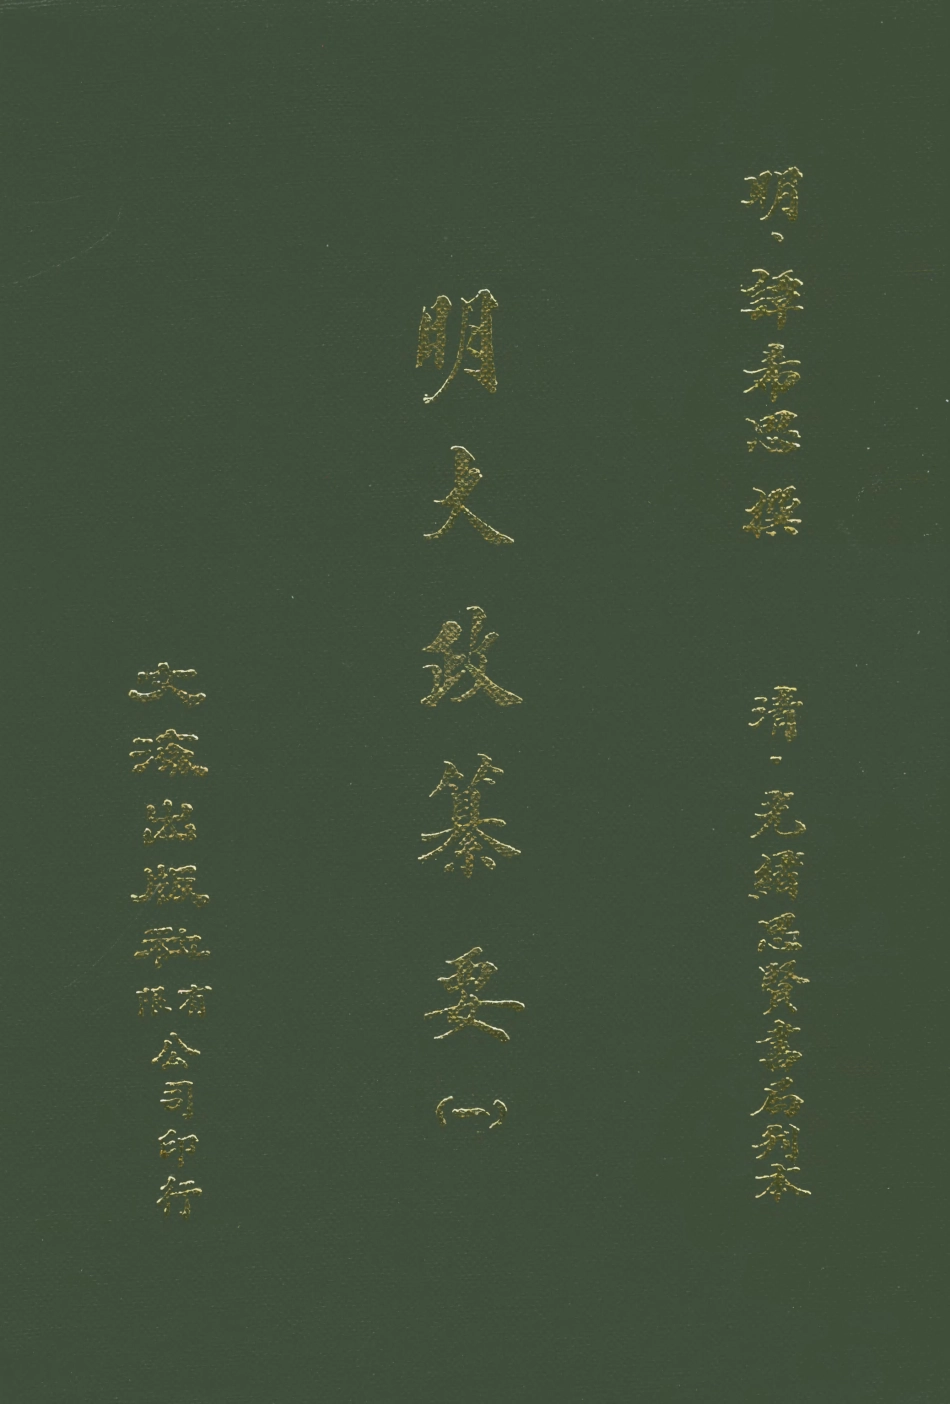 明·譚希思撰 清·光緒思賢書局刊本
明大政纂要(一)
文海出版社有限公司印行